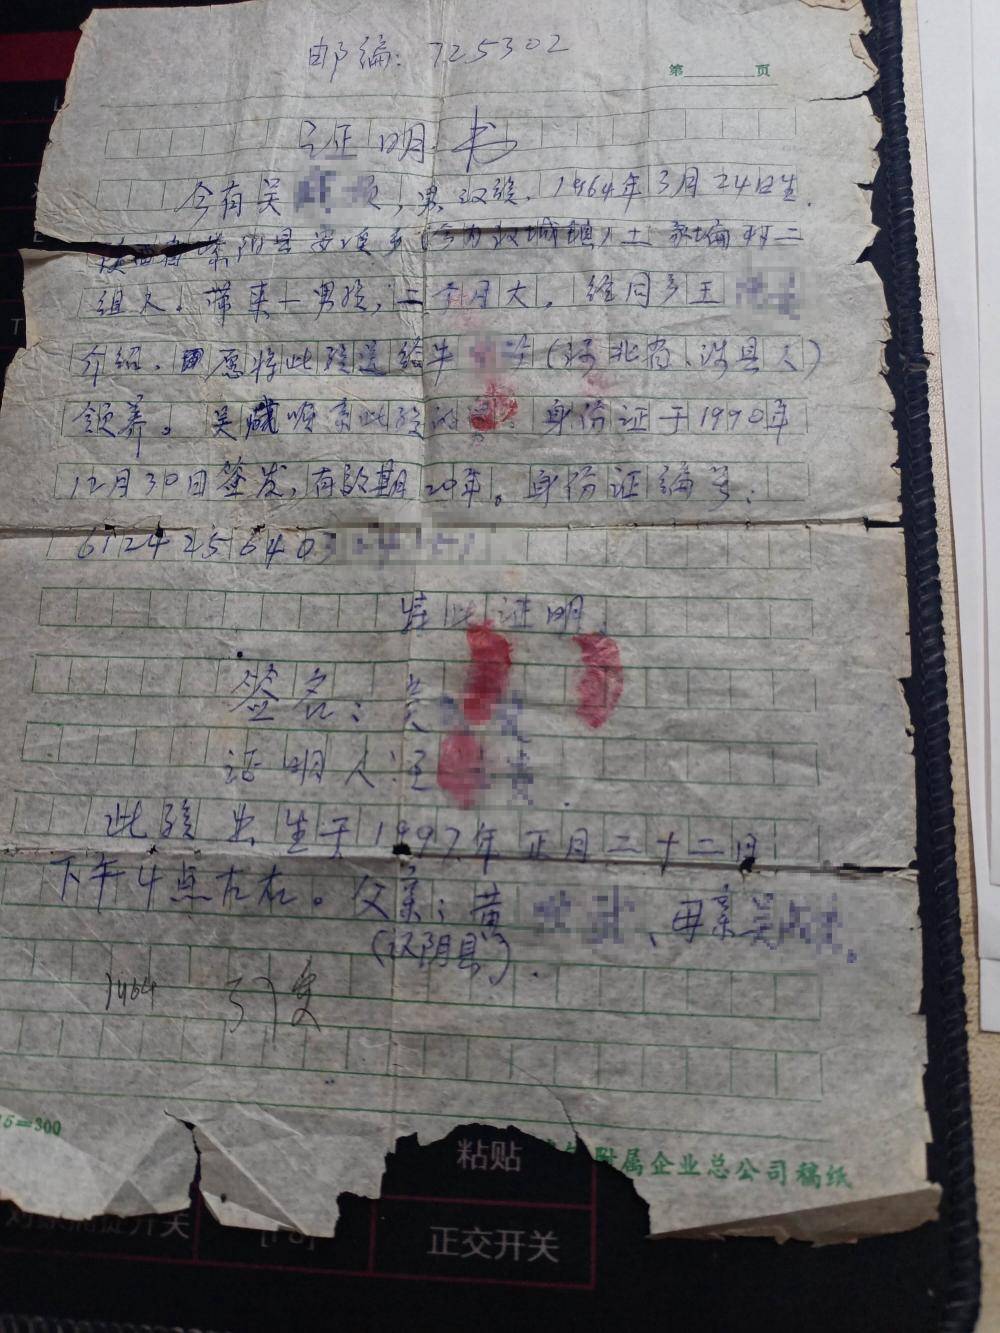 邮编: 725302
第 页
证明书
今有吴 顺, 男, 汉族. 1964年3月24日生.
紫阳县安 乡(今为汉城镇)土 村二
组人. 带来一男孩, 二个月大. 经同乡王
介绍. 愿将此孩送给牛 (河北省、涉县人)
领养。 吴 顺系此孩的 . 身份证于1990年
12月30日签发, 有效期20年。身份证编号:
6124256403
特此证明.
签名: 吴
证明人: 王
此孩出生于1997年正月二十二日
下午4点左右。父亲: 黄 、母亲吴 .
(汉阴县).
1964
15=300
附属企业总公司稿纸
粘贴
开关
正交开关